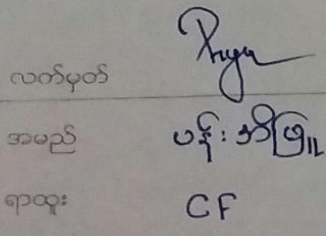 လက်မှတ်
အမည် ပန်းအိဖြူ
ရာထူး CF